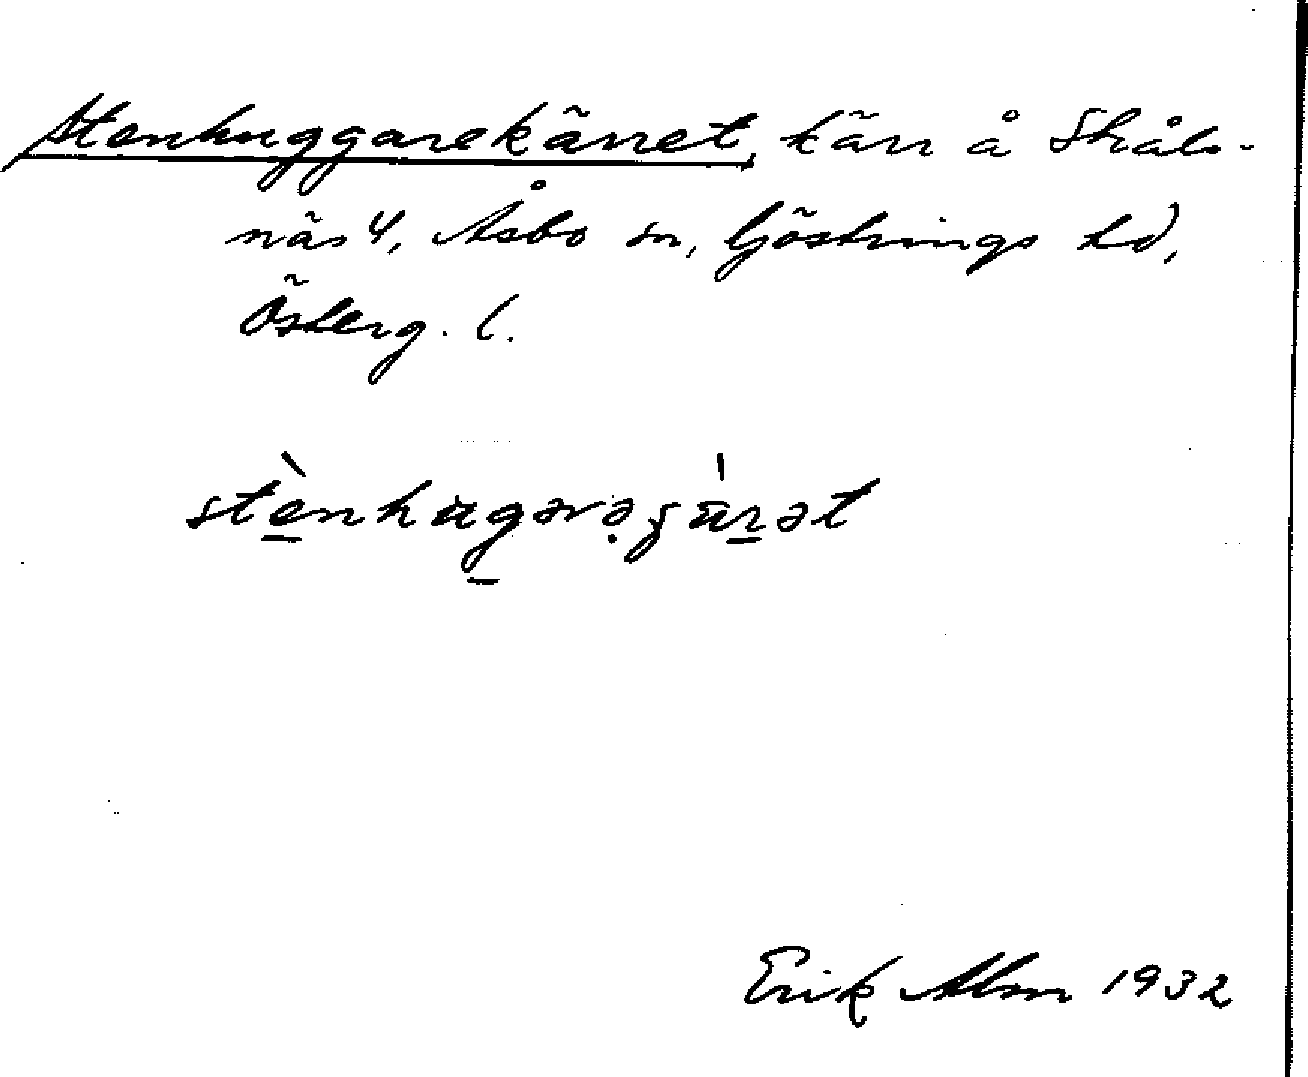 Stenhuggarekärret, kärr å Skåls-
näs 4, Åsbo sn, Göstrings hd,
Österg. l.
stènhugərəʒä̀rət
Erik Alm 1932